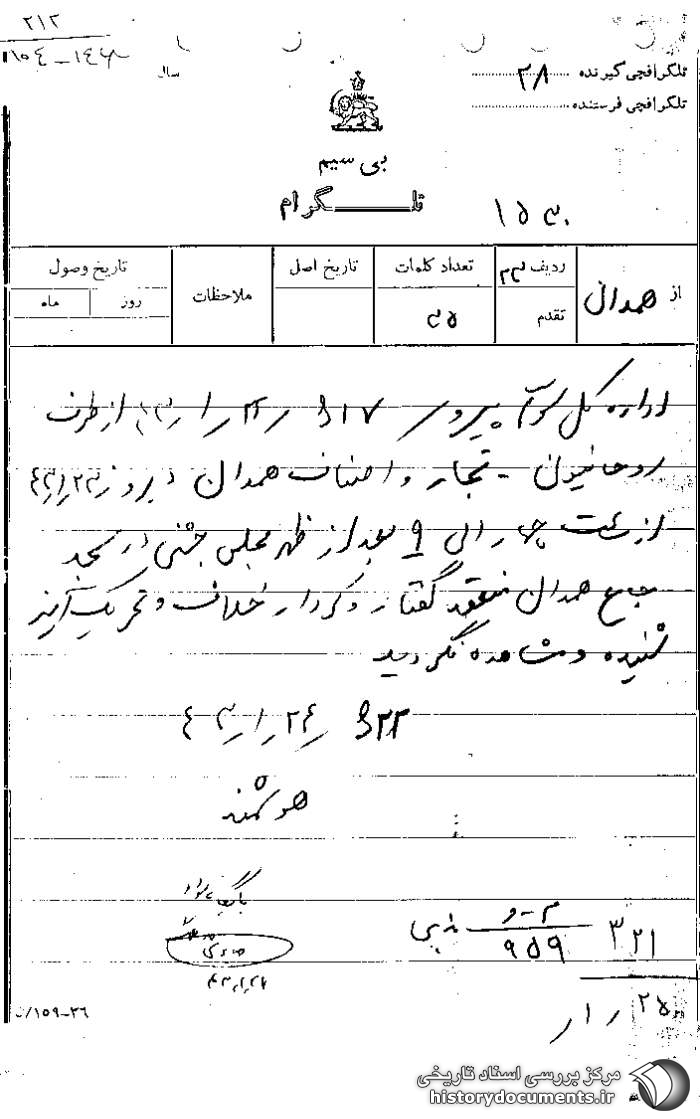 ۲۱۲
تلگرافچی گیرنده ۲۸
سال
تلگرافچی فرستنده
بی سیم
تلگرام
۱۵۳۰
از همدان
ردیف ۲۳
تقدم
تعداد کلمات
۴۵
تاریخ اصل
ملاحظات
تاریخ وصول
روز
ماه
اداره کل سوم پیرو از طرف
روحانیون - تجار و اصناف همدان دیروز ۲۳ر۱ر۴۴
از ساعت چهار الی ۹ بعد از ظهر مجلس جشنی در مسجد
جامع همدان منعقد گفتار و کردار خلاف و تحریک آمیز
شنیده و مشاهده نگردید
۹۲۲ ۲۴ر۱ر۴۴
هوشمند
بایگانی شود
۳۲۱
م-و
۹۵۹
۲۵ر۱ر
۱۵۹-۳۶/ت
مرکز بررسی اسناد تاریخی
historydocuments.ir